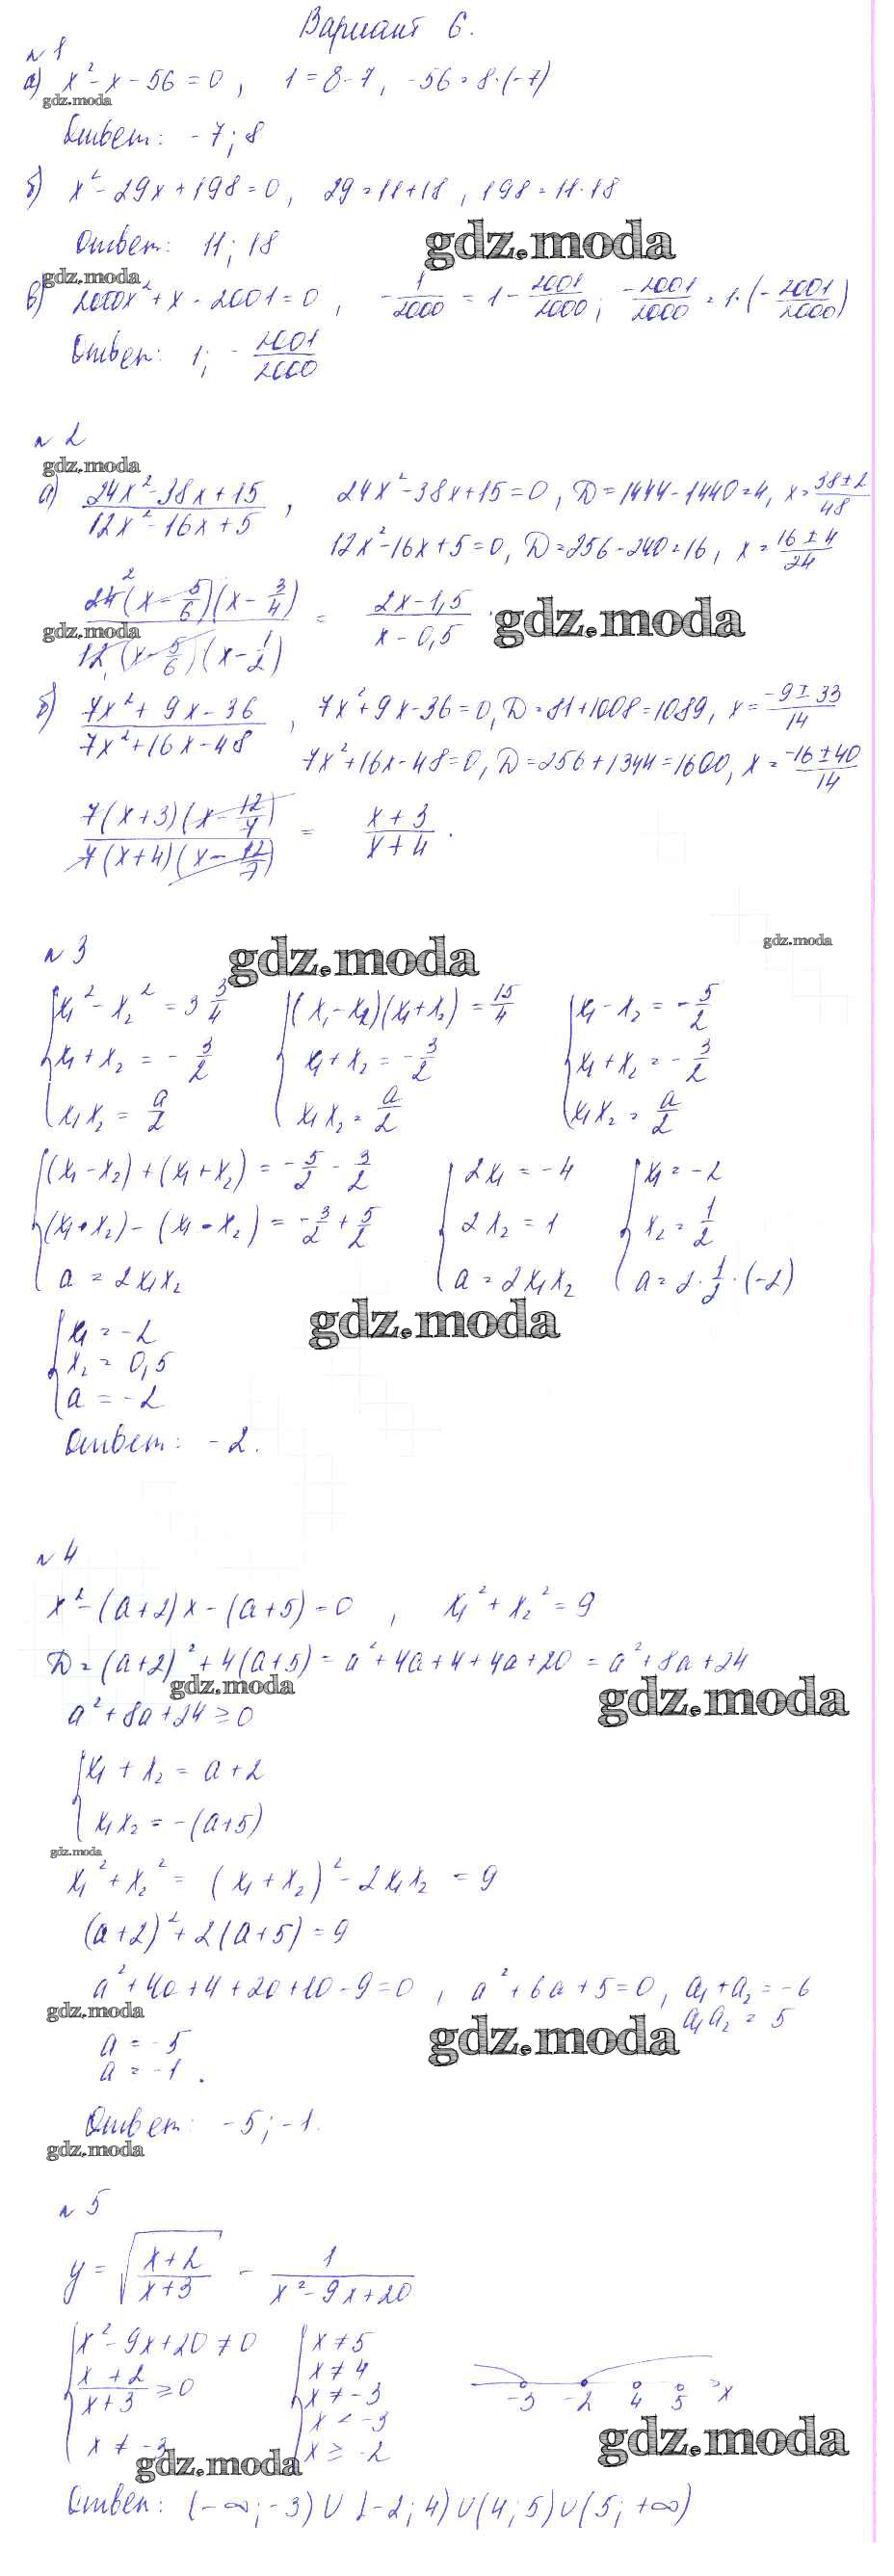 Вариант 6.
№1
а) x² - x - 56 = 0, 1 = 8 - 7, -56 = 8·(-7)
gdz.moda
Ответ: -7; 8
б) x² - 29x + 198 = 0, 29 = 11 + 18, 198 = 11·18
Ответ: 11; 18
gdz.moda
gdz.moda
в) 2000x² + x - 2001 = 0, -1/2000 = 1 - 2001/2000; -2001/2000 = 1·(-2001/2000)
Ответ: 1; -2001/2000
№2
gdz.moda
а) (24x² - 38x + 15)/(12x² - 16x + 5), 24x² - 38x + 15 = 0, D = 1444 - 1440 = 4, x = (38 ± 2)/48
12x² - 16x + 5 = 0, D = 256 - 240 = 16, x = (16 ± 4)/24
24 2 (x - 5/6)(x - 3/4) / 12 (x - 5/6)(x - 1/2) = (2x - 1,5)/(x - 0,5).
gdz.moda
gdz.moda
б) (7x² + 9x - 36)/(7x² + 16x - 48), 7x² + 9x - 36 = 0, D = 81 + 1008 = 1089, x = (-9 ± 33)/14
7x² + 16x - 48 = 0, D = 256 + 1344 = 1600, x = (-16 ± 40)/14
7(x + 3)(x - 12/7) / 7(x + 4)(x - 12/7) = (x + 3)/(x + 4).
№3
gdz.moda
gdz.moda
{ x₁² - x₂² = 3 3/4 { (x₁ - x₂)(x₁ + x₂) = 15/4 { x₁ - x₂ = -5/2
x₁ + x₂ = -3/2 x₁ + x₂ = -3/2 x₁ + x₂ = -3/2
x₁x₂ = a/2 x₁x₂ = a/2 x₁x₂ = a/2
{ (x₁ - x₂) + (x₁ + x₂) = -5/2 - 3/2 { 2x₁ = -4 { x₁ = -2
(x₁ + x₂) - (x₁ - x₂) = -3/2 + 5/2 2x₂ = 1 x₂ = 1/2
a = 2x₁x₂ a = 2x₁x₂ a = 2·1/2·(-2)
gdz.moda
{ x₁ = -2
x₂ = 0,5
a = -2
Ответ: -2.
№4
x² - (a+2)x - (a+5) = 0, x₁² + x₂² = 9
D = (a+2)² + 4(a+5) = a² + 4a + 4 + 4a + 20 = a² + 8a + 24
gdz.moda
gdz.moda
a² + 8a + 24 ≥ 0
{ x₁ + x₂ = a + 2
x₁x₂ = -(a+5)
gdz.moda
x₁² + x₂² = (x₁ + x₂)² - 2x₁x₂ = 9
(a+2)² + 2(a+5) = 9
a² + 4a + 4 + 2a + 10 - 9 = 0, a² + 6a + 5 = 0, a₁ + a₂ = -6
a₁a₂ = 5
gdz.moda
gdz.moda
a = -5
a = -1.
Ответ: -5; -1.
gdz.moda
№5
y = √((x+2)/(x+3)) - 1/(x² - 9x + 20)
{ x² - 9x + 20 ≠ 0 { x ≠ 5
(x + 2)/(x + 3) ≥ 0 x ≠ 4
x ≠ -3 x ≠ -3
x < -3
x ≥ -2
-3 -2 4 5 x
gdz.moda
gdz.moda
Ответ: (-∞; -3) ∪ [-2; 4) ∪ (4; 5) ∪ (5; +∞)